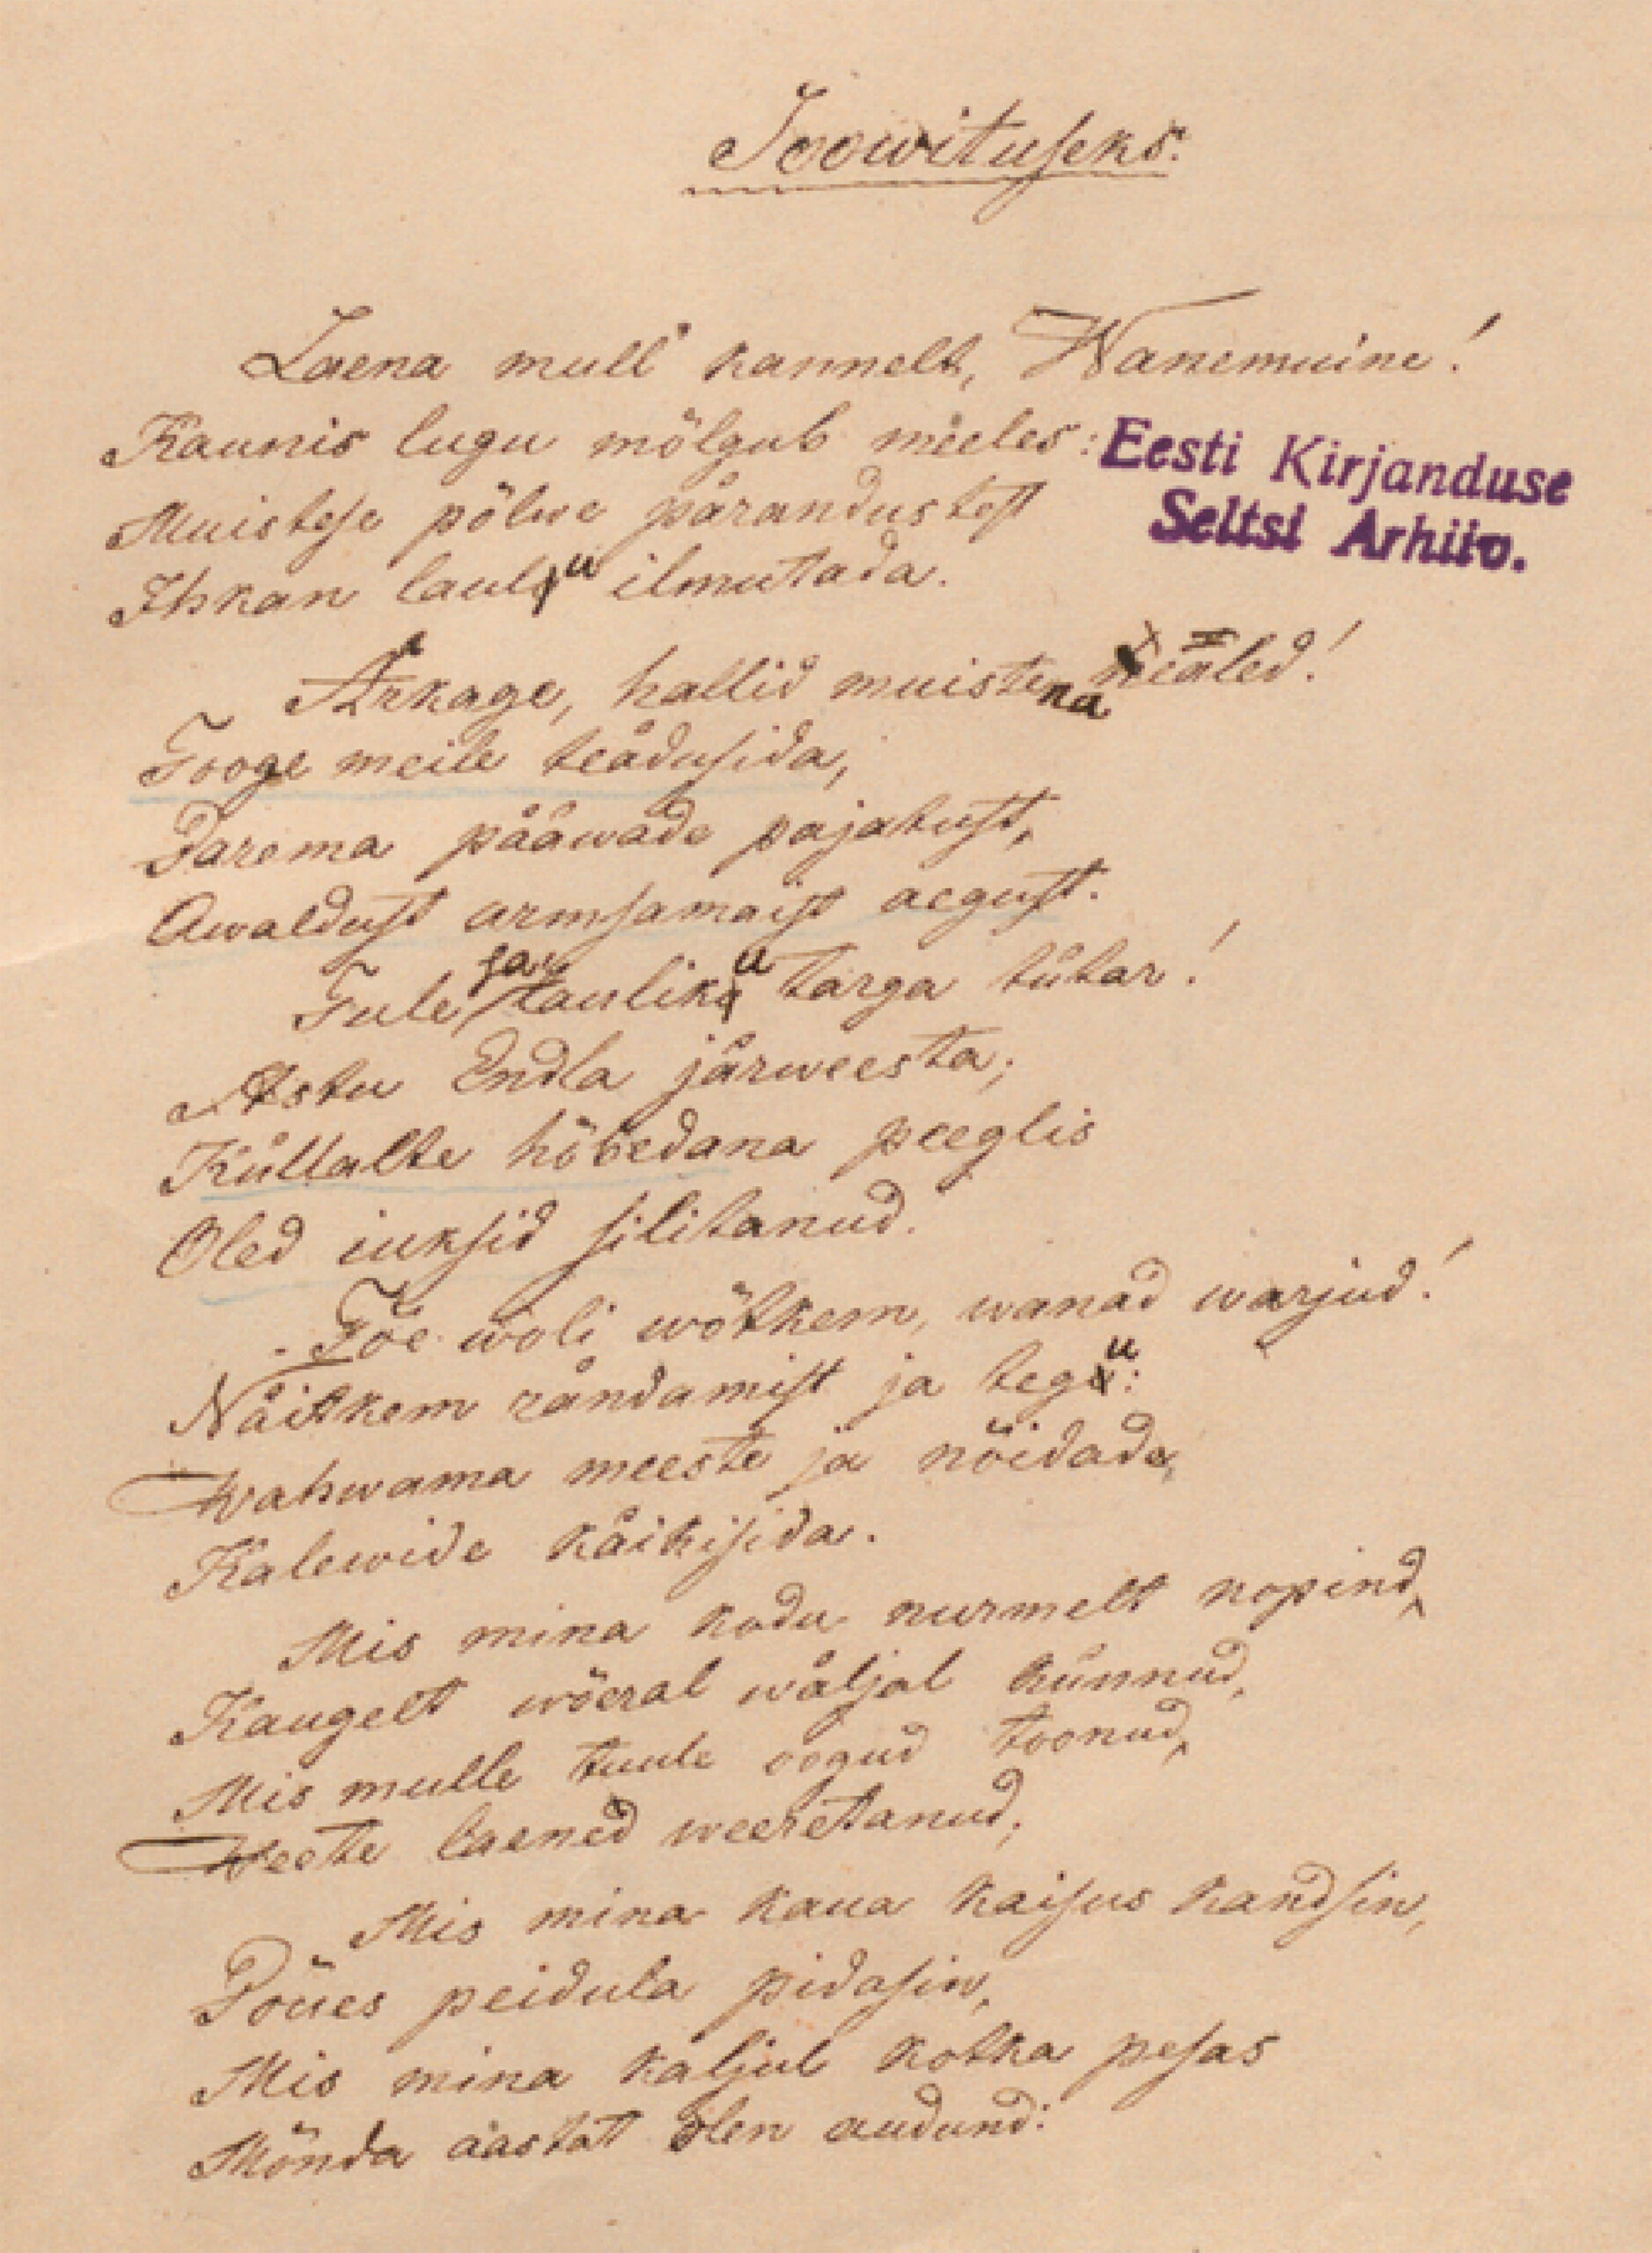 Soowituseks.
Laena mull' kannelt, Wanemuine!
Kaunis lugu mõlgub meeles:
Eesti Kirjanduse
Muistese põlwe pärandustest
Seltsi Arhiiv.
Ihkan laulu ilmutada.
Ärkage, hallid muistena ääled!
Tooge meile teädusida,
Parema pääwade pajatust,
Awaldust armsamaist aegust.
Tule sa lauliku targa tütar!
Astu Endla järweesta;
Küllalte hõbedana peeglis
Oled iuksid silitanud.
Tõe woli wõtkem, wanad warjud!
Näitkem rändamist ja tegu:
Wahwama meeste ja nõidade,
Kalewide käikisida.
Mis mina kodu nurmelt nopind,
Kaugelt wõeral wäljal künnud,
Mis mulle tuule oogud toonud,
Weete laened weeretanud;
Mis mina kaua kaisus kandsin,
Põues peidula pidasin,
Mis mina kaljul kotka pesas
Mõnda aastat olen audund: